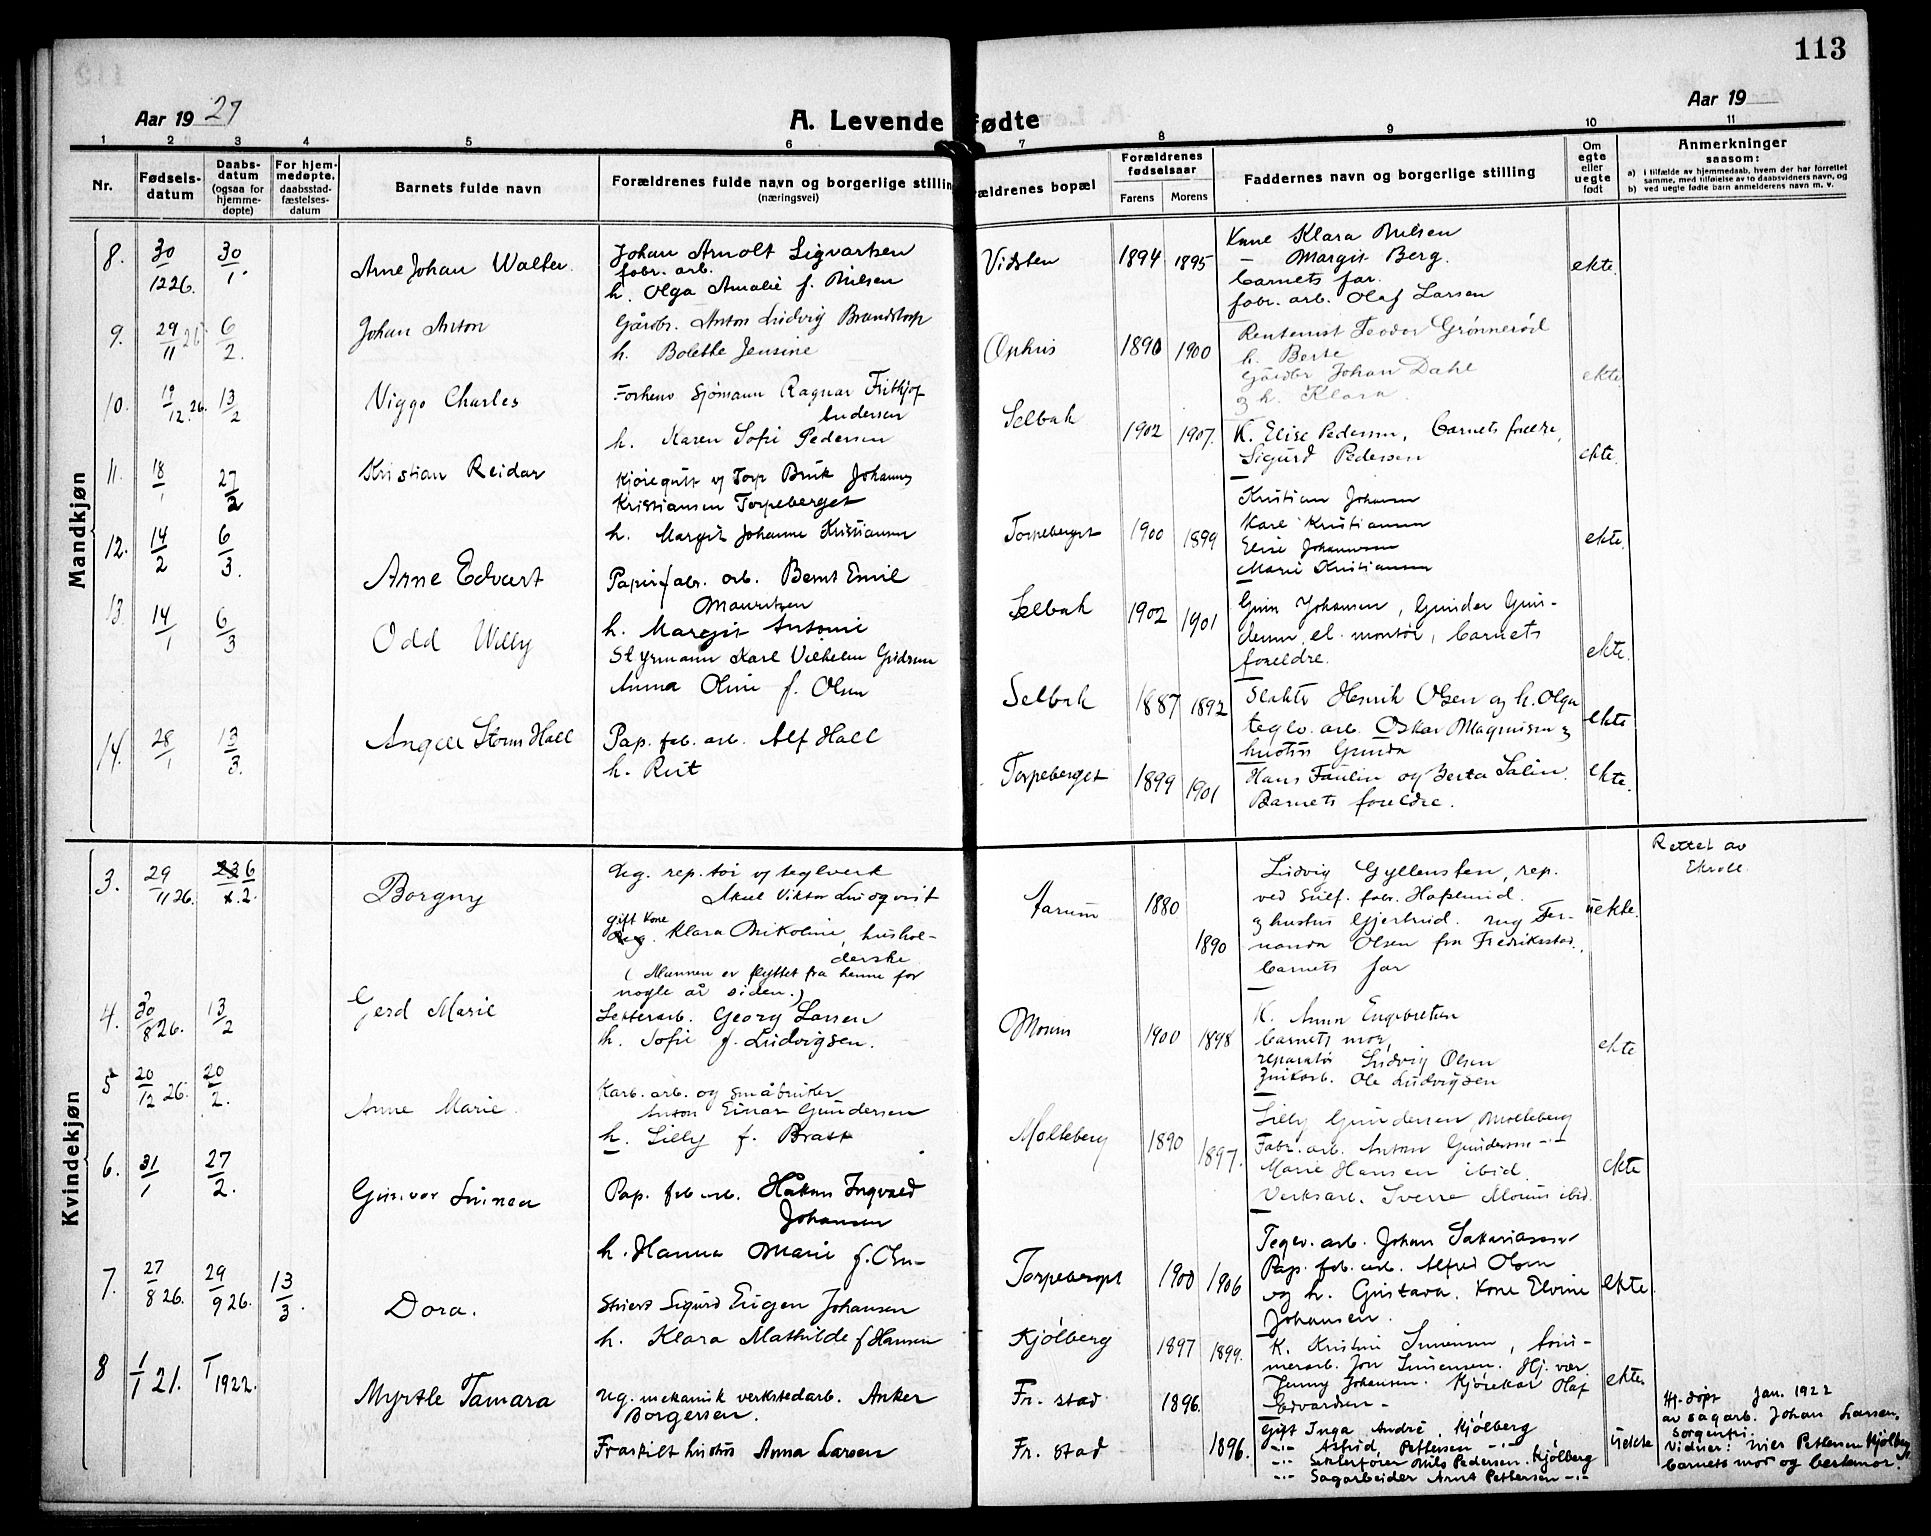 113
Aar 1927
A. Levende fødte
Aar 19
1 2 3 4 5 6 7 8 9 10 11
Nr.
Fødsels-datum
Daabs-datum (ogsaa for hjemme-døpte)
For hjem-medøpte, daabsstad-fæstelses-datum
Barnets fulde navn
Forældrenes fulde navn og borgerlige stilling (næringsvei)
ældrenes bopæl
Forældrenes fødselsaar
Farens Morens
Faddernes navn og borgerlige stilling
Om egte eller uegte født
Anmerkninger saasom:
a) i tilfælde av hjemmedaab, hvem der har forrettet samme, med tilføielse av to daabsvidners navn, og
b) ved uegte fødte barn anmelderens navn m. v.
Mandkjøn
8. 30/12 26. 30/1. Arne Johan Walter
Johan Arnolt Sigvartsen
fabr. arb.
h. Olga Amalie f. Nilsen
Vidsten 1894 1895
Kone Klara Nilsen
— Margit Berg.
barnets far.
fabr. arb. Olaf Larsen
ekte.
9. 29/11 26 6/2. Johan Anton
Gårdbr. Anton Ludvig Brandstorp
h. Bolethe Jensine
Ophus 1890 1900
Rentenist Teodor Grønnerød
h. Berte
Gårdbr Johan Dahl
og h. Klara.
ekte
10. 19/12 26. 13/2 Viggo Charles
Forhenv sjømann Ragnar Fritkjof
Andersen
h. Karen Sofie Pedersen
Selbak 1902 1907.
K. Elise Pedersen, barnets foreldre,
Sigurd Pedersen
ekte.
11. 18/1 27/2 Kristian Reidar
Kjøregutt v/ Torp Bruk Johannes
Kristiansen Torpeberget
h. Margit Johanne Kristiansen
Torpeberget 1900 1899
Kristian Johansen
Karl Kristiansen
Elise Johannesen
Marie Kristiansen
ekte.
12. 14/2 6/3. Arne Edvart
Papirfabr. arb. Bernt Emil
Mauritzen
h. Margit Antonie
Selbak 1902 1901
Johansen, Gunder Gun-
el. montør, barnets
foreldre.
ekte.
13 14/1 6/3 Odd Willy
Styrmann Karl Vilhelm
Anna Oline f. Olsen
Selbak 1887 1892
Slakter Henrik Olsen og h. Olga
teglv. arb. Oskar Magnusen og
hustru Gunda
ekte
14. 28/1 13/3. Angell Storm Hall
Pap. fab. arb. Alf Hall
h. Rut
Torpeberget 1899 1901
Hans Paulin og Berta Salin.
Barnets foreldre.
ekte.
Kvindekjøn
3. 29/11 26. 6/2. Borgny
Ug. rep.tør v/ teglverk
Aksel Viktor Lindqvist
Gift kone
Klara Nikoline, hushol-
derske
(Mannen er flyttet fra henne for
nogle år siden.)
Aarum 1880 1890
Ludvig Gyllensten, rep.
ved Sulf. fabr. Hafslund.
og hustru Gjertrud. ug Fer-
nanda Olsen fra Fredriksstad.
barnets far
uekte.
Rettet av
4. 30/8 26. 13/2 Gerd Marie
Sekterarb. Georg Larsen
h. Sofie f. Ludvigsen.
Moum 1900 1898
K. Anna Engebretsen
barnets mor,
reparatør Ludvig Olsen
Zinkarb. Ole Ludvigsen
ekte
5 20/12 26. 20/2. Anne Marie.
Karb. arb. og småbruker
Anton Einar Gundersen
h. Lilly f. Bratt
Molteberg 1890 1897.
Lilly Gundersen, Molteberg
Fabr. arb. Anton Gundersen -"-
Marie Hansen ibid.
Verksarb. Sverre Moum ibid.
ekte
6. 31/1 27/2. Gunvor Linnea
Pap. fab arb. Håkon Ingvald
Johansen
h. Hanna Marie f. Olsen
Torpeberget 1900 1906
Teglv. arb. Johan Sakariassen
Pap. fab. arb. Alfred Olsen
og h. Gustava. Kone Elvine
Johansen.
ekte.
7. 27/8 26. 29/9 26. 13/3. Dora.
Sigurd Eugen Johansen
h. Klara Mathilde f Hansen
Kjølberg 1897 1899.
K. Kristine Simensen, tøm-
merarb. Jon Simensen. Hj. vær
Jenny Johansen. Kjørekar Olaf
Edvardsen -
ekte.
8 1/1 21. 1/1922. Myrtle Tamara
Ug. mekanisk verkstedarb. Anker
Borgersen.
Fraskilt hustru Anna Larsen
Fr. stad 1896.
Fr. stad 1896.
Gift Inga André, Kjølberg
-"- Astrid Pettersen -"-
-"- Nils Pedersen. Kjølberg
-"- Sagarbeider Arnt Pettersen -"-
uekte
Hj. døpt Jan. 1922
av sagarb. Johan Larsen,
Sorgenfri.
Vidner: Nils Pettersen Kjølberg
barnets mor og bestemor.